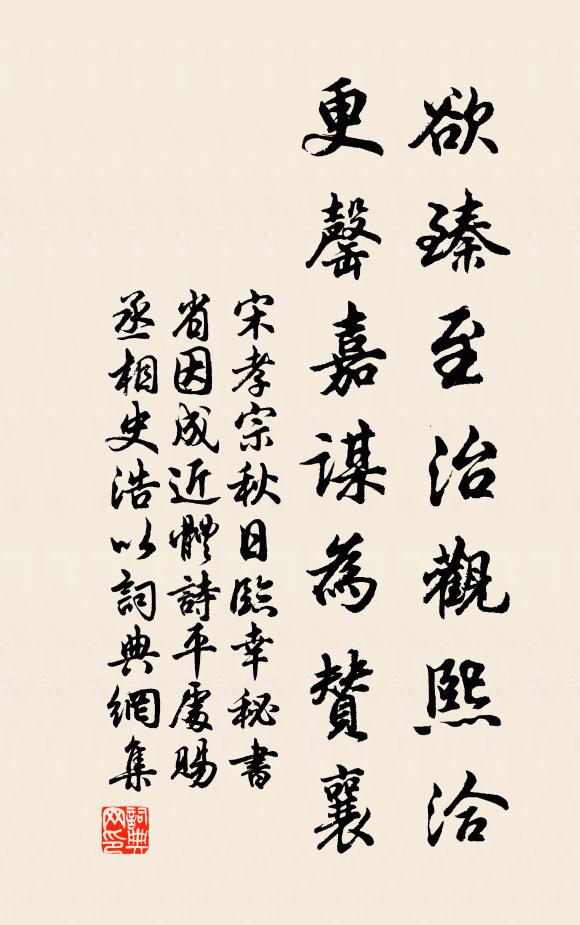 欲臻至治觀熙洽
更罄嘉謀為贊襄
宋孝宗秋日臨幸秘書
省因成近體詩平處賜
丞相史浩以詞典網集
詞典网印